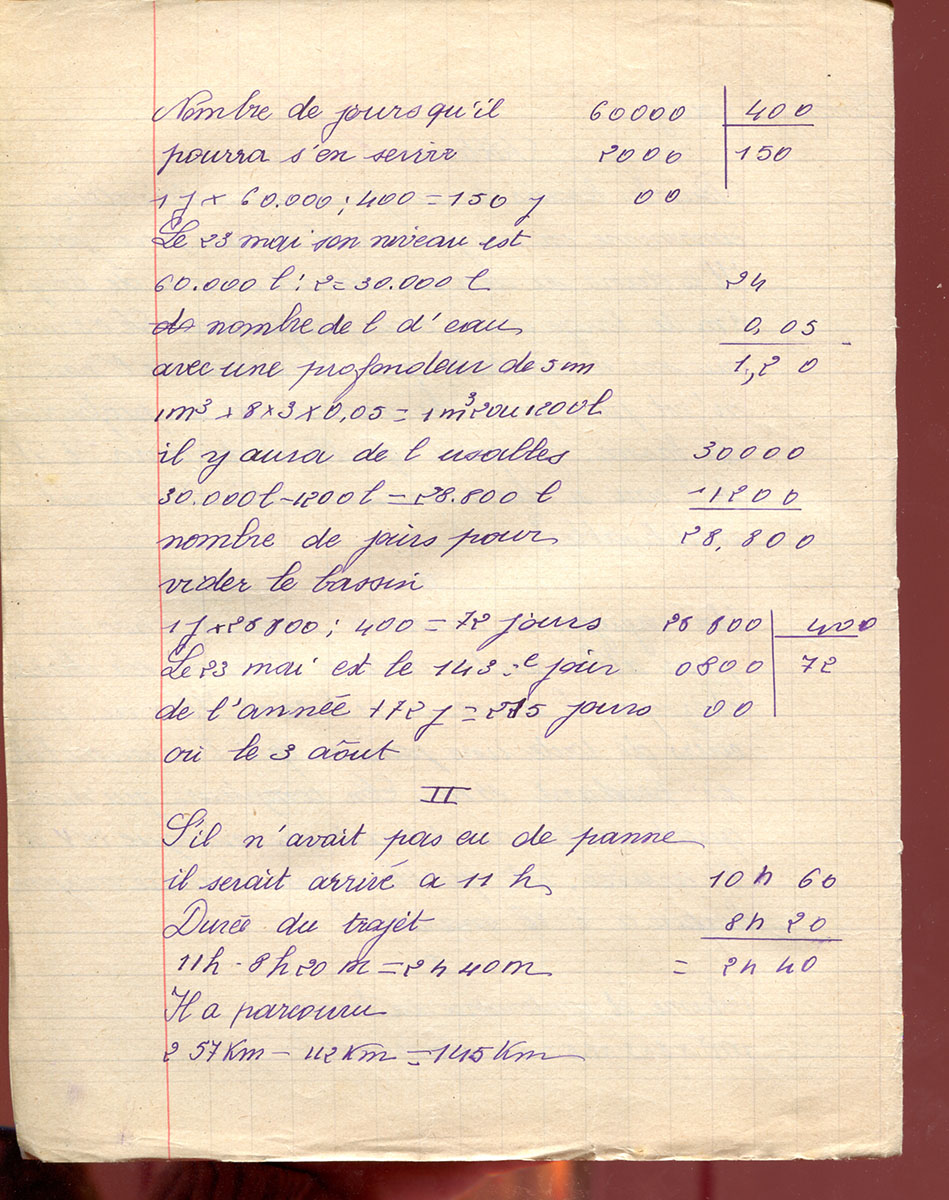 Nombre de jours qu'il 60000 400
pourra s'en servir 2000 150
1 j × 60.000 : 400 = 150 j 00
Le 23 mai son niveau est
60.000 l : 2 = 30.000 l 24
nombre de l d'eau 0,05
avec une profondeur de 5 m 1,20
1m³ × 8 × 3 × 0,05 = 1m³20 ou 1200l
il y aura de l usables 30000
30.000l - 1200l = 28.800 l 1200
nombre de jours pour 28,800
vider le bassin
1 j × 28800 : 400 = 72 jours 28 800 400
Le 23 mai est le 143 e jour 0800 72
de l'année + 72 j = 215 jours 00
ou le 3 aôut
II
S'il n'avait pas eu de panne
il serait arrivé a 11 h 10 h 60
Durée du trajet 8h 20
11h - 8h20 m = 2h 40m = 2h 40
Il a parcouru
257 Km - 112 Km = 145 Km